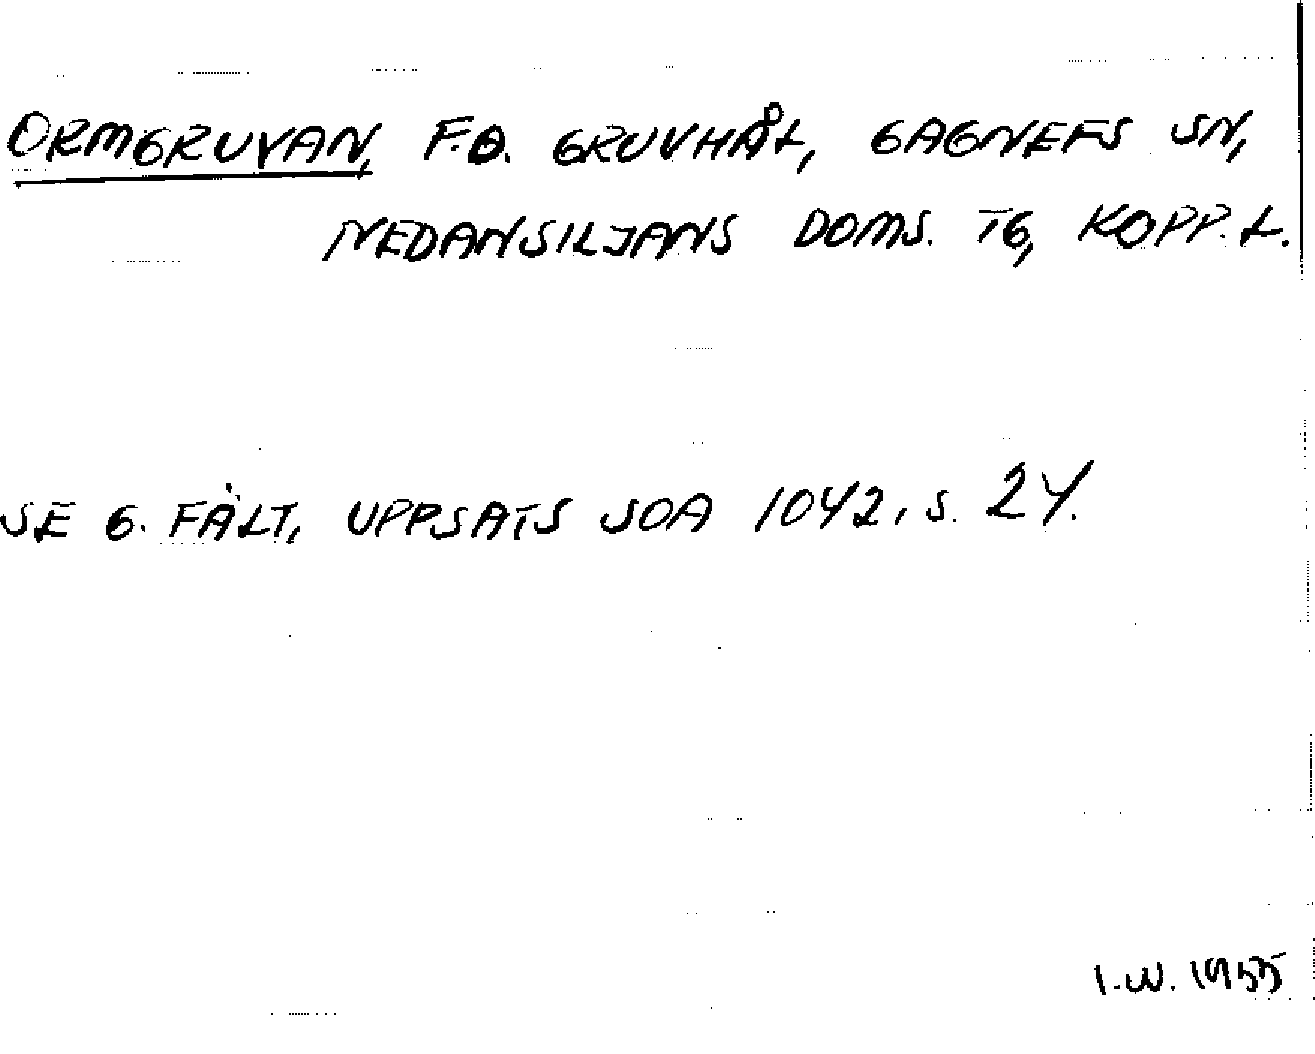 ORMGRUVAN, F.D. GRUVHÅL, GAGNEFS SN,
NEDANSILJANS DOMS. TG, KOPP. L.
SE G. FÄLT, UPPSATS SOA 1042, S. 24.
I.W. 1955